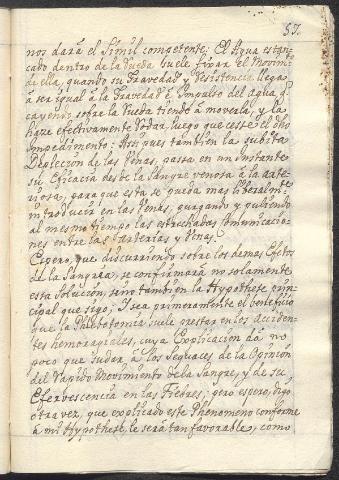 57.
nos dará el Simil competente: El Agua estan-
cado dentro de la Rueda suele fixar el Movim.to
de ella, quando su gravedad y resistencia llega
á ser igual á la gravedad é Impulso del agua, q.
cayendo sobre la Rueda tiende á moverla, y la
haze efectivamente rodar luego que cesse el dho
Impedimento: Assi pues tambien la subita
Deplecion de las Venas, passa en un instante
su Eficacia desde la Sangre venosa á la arte-
riosa, para que esta se pueda mas liberalm.te
introducir en las Venas, purgando y puliendo
al mesmo tiempo las estrechadas Comunicacio-
nes entre las Arterias y Venas.
Espero, que discurriendo sobre los demas Efetos
de la Sangria, se confirmará no solamente
esta Solucion, sino tambien la Hypothese prin-
cipal que sigo; Y sea primeramente el beneficio
que la Phlebotomia suele prestar en los acciden-
tes hemoragicales, cuya Explicacion dá no
poco que sudar á los Sequaces de la Opinion
del Rapido Movimiento de la Sangre, y de su
Efervescencia en las Fiebres; pero espero, digo
otra vez, que explicado este Phenomeno conforme
á mi Hypothese, le será tan favorable, como